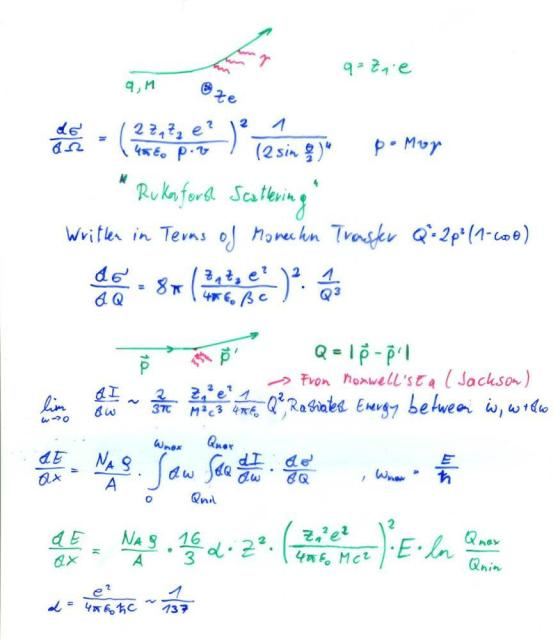 q = Z₁·e
γ
q, M
Ze
dσ/dΩ = (2 Z₁ Z₂ e² / 4πε₀ p·v)² 1/(2 sin θ/2)⁴ p = Mvγ
"Rutherford Scattering"
Written in Terms of Momentum Transfer Q² = 2p²(1-cosθ)
dσ/dQ = 8π (Z₁ Z₂ e² / 4πε₀ βc)² · 1/Q³
p⃗ p⃗' Q = |p⃗ - p⃗'|
→ From Maxwell's Eq (Jackson)
lim ω→0 dI/dω ~ 2/3π Z₁² e²/M²c³ 1/4πε₀ Q², Radiated Energy between ω, ω+dω
dE/dx = N_A ρ/A · ∫₀^ωmax dω ∫_Qmin^Qmax dQ dI/dω · dσ/dQ , ωmax = E/ħ
dE/dx = N_A ρ/A · 16/3 α · Z² · (Z₁² e² / 4πε₀ Mc²)² · E · ln Qmax/Qmin
α = e²/4πε₀ħc ~ 1/137